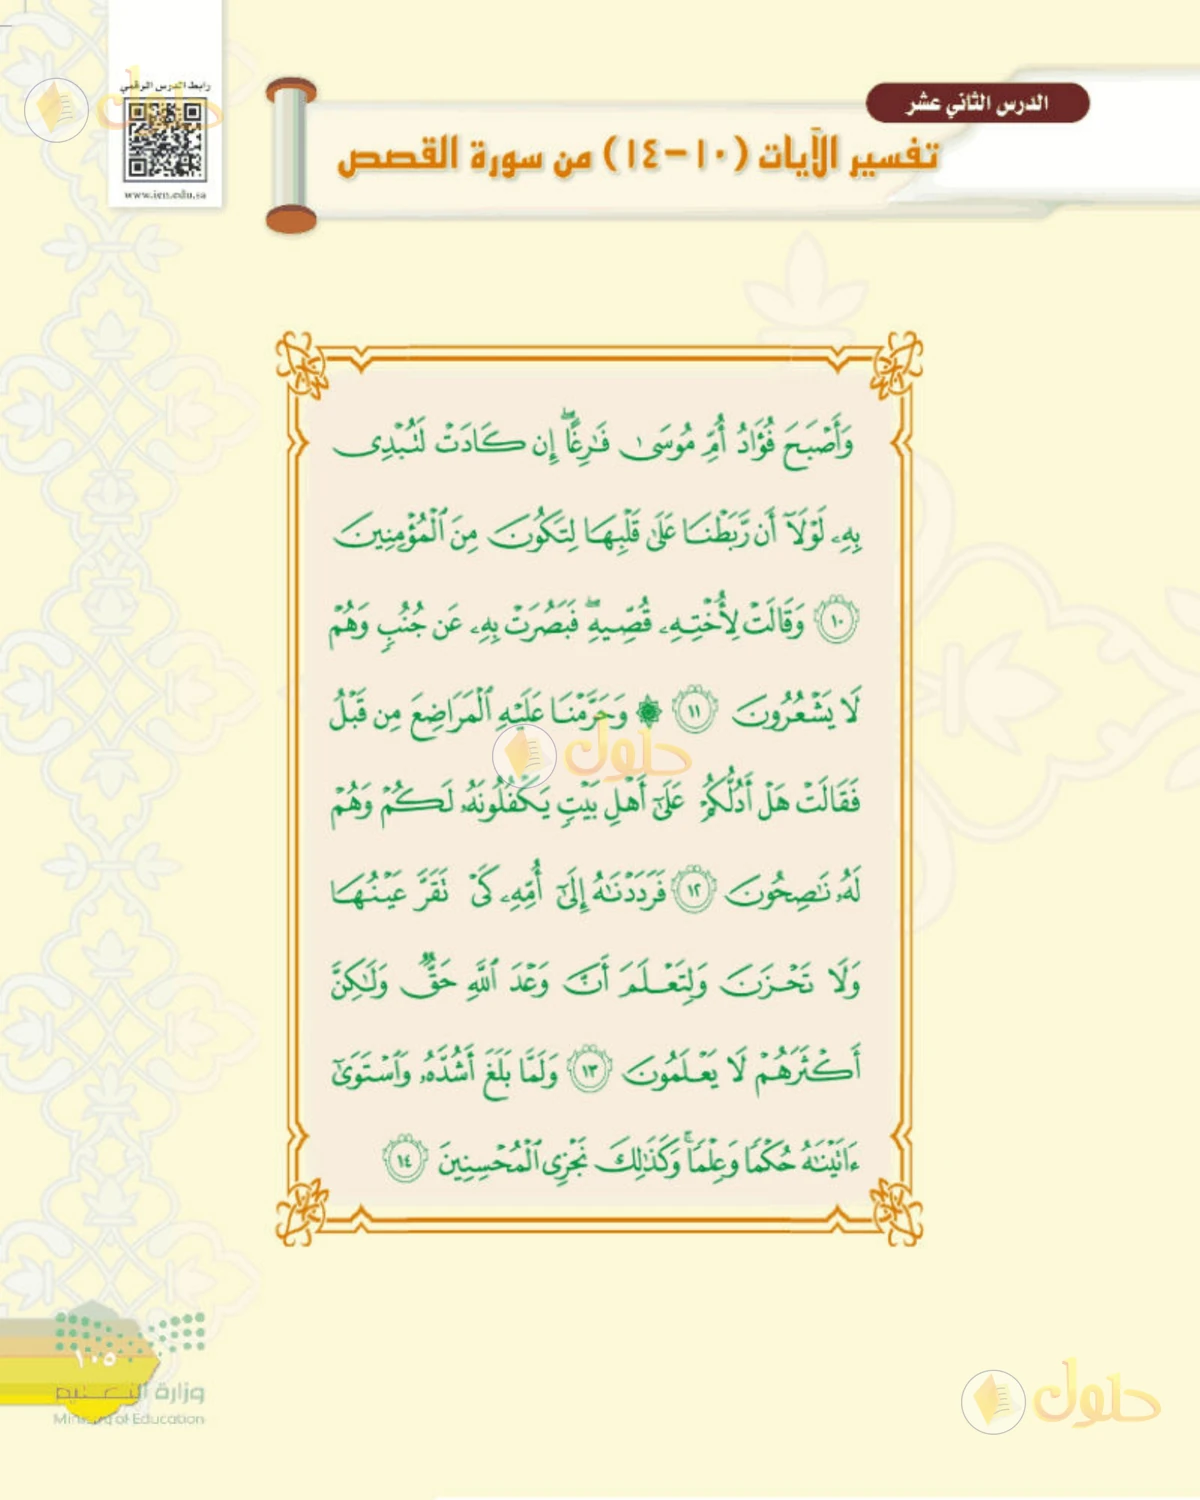 رابط الدرس الرقمي
www.ien.edu.sa
حلول
الدرس الثاني عشر
تفسير الآيات (١٠-١٤) من سورة القصص
وَأَصْبَحَ فُؤَادُ أُمِّ مُوسَىٰ فَٰرِغًا ۖ إِن كَادَتْ لَتُبْدِى
بِهِۦ لَوْلَآ أَن رَّبَطْنَا عَلَىٰ قَلْبِهَا لِتَكُونَ مِنَ ٱلْمُؤْمِنِينَ
١٠ وَقَالَتْ لِأُخْتِهِۦ قُصِّيهِ ۖ فَبَصُرَتْ بِهِۦ عَن جُنُبٍ وَهُمْ
لَا يَشْعُرُونَ ١١ ۞ وَحَرَّمْنَا عَلَيْهِ ٱلْمَرَاضِعَ مِن قَبْلُ
حلول
فَقَالَتْ هَلْ أَدُلُّكُمْ عَلَىٰٓ أَهْلِ بَيْتٍ يَكْفُلُونَهُۥ لَكُمْ وَهُمْ
لَهُۥ نَٰصِحُونَ ١٢ فَرَدَدْنَٰهُ إِلَىٰٓ أُمِّهِۦ كَىْ تَقَرَّ عَيْنُهَا
وَلَا تَحْزَنَ وَلِتَعْلَمَ أَنَّ وَعْدَ ٱللَّهِ حَقٌّ وَلَٰكِنَّ
أَكْثَرَهُمْ لَا يَعْلَمُونَ ١٣ وَلَمَّا بَلَغَ أَشُدَّهُۥ وَٱسْتَوَىٰٓ
ءَاتَيْنَٰهُ حُكْمًا وَعِلْمًا ۚ وَكَذَٰلِكَ نَجْزِى ٱلْمُحْسِنِينَ ١٤
١٠٥
وزارة التعليم
Ministry of Education
حلول